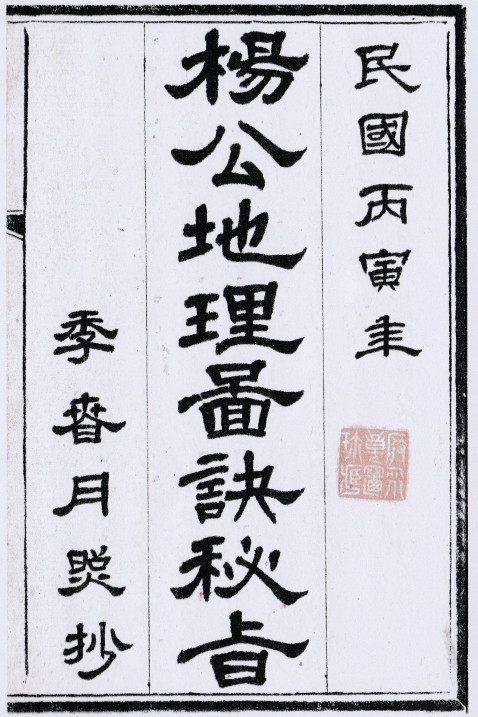 民國丙寅年
楊公地理啚訣秘旨
季春月照抄